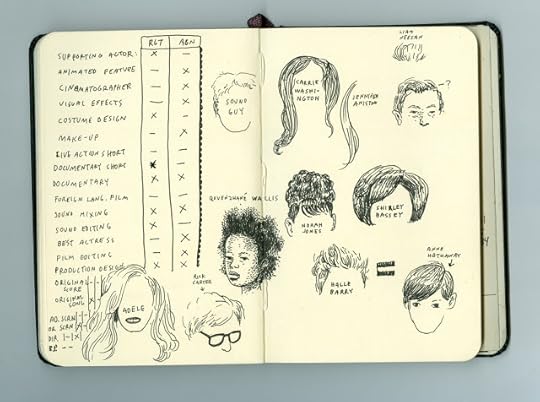 RLT ABN
SUPPORTING ACTOR: X –
ANIMATED FEATURE – X
CINEMATOGRAPHER – X
VISUAL EFFECTS – X
COSTUME DESIGN X –
MAKE-UP – X
LIVE ACTION SHORT – –
DOCUMENTARY SHORT X –
DOCUMENTARY X X
FOREIGN LANG. FILM – X
SOUND MIXING X X
SOUND EDITING X X
BEST ACTRESS – –
FILM EDITING – X
PRODUCTION DESIGN X X
ORIGINAL
SCORE
ORIGINAL
SONG
AD. SCRN
OR SCRN
DIR
ADELE
SOUND
GUY
QUVENZHANÉ WALLIS
RICK
CARTER
LIAM
NEESON
CARRIE
WASHI-
NGTON
JENNIFER
ANISTON
–?
NORAH
JONES
SHIRLEY
BASSEY
HALLE
BARRY
=
ANNE
HATHAWAY